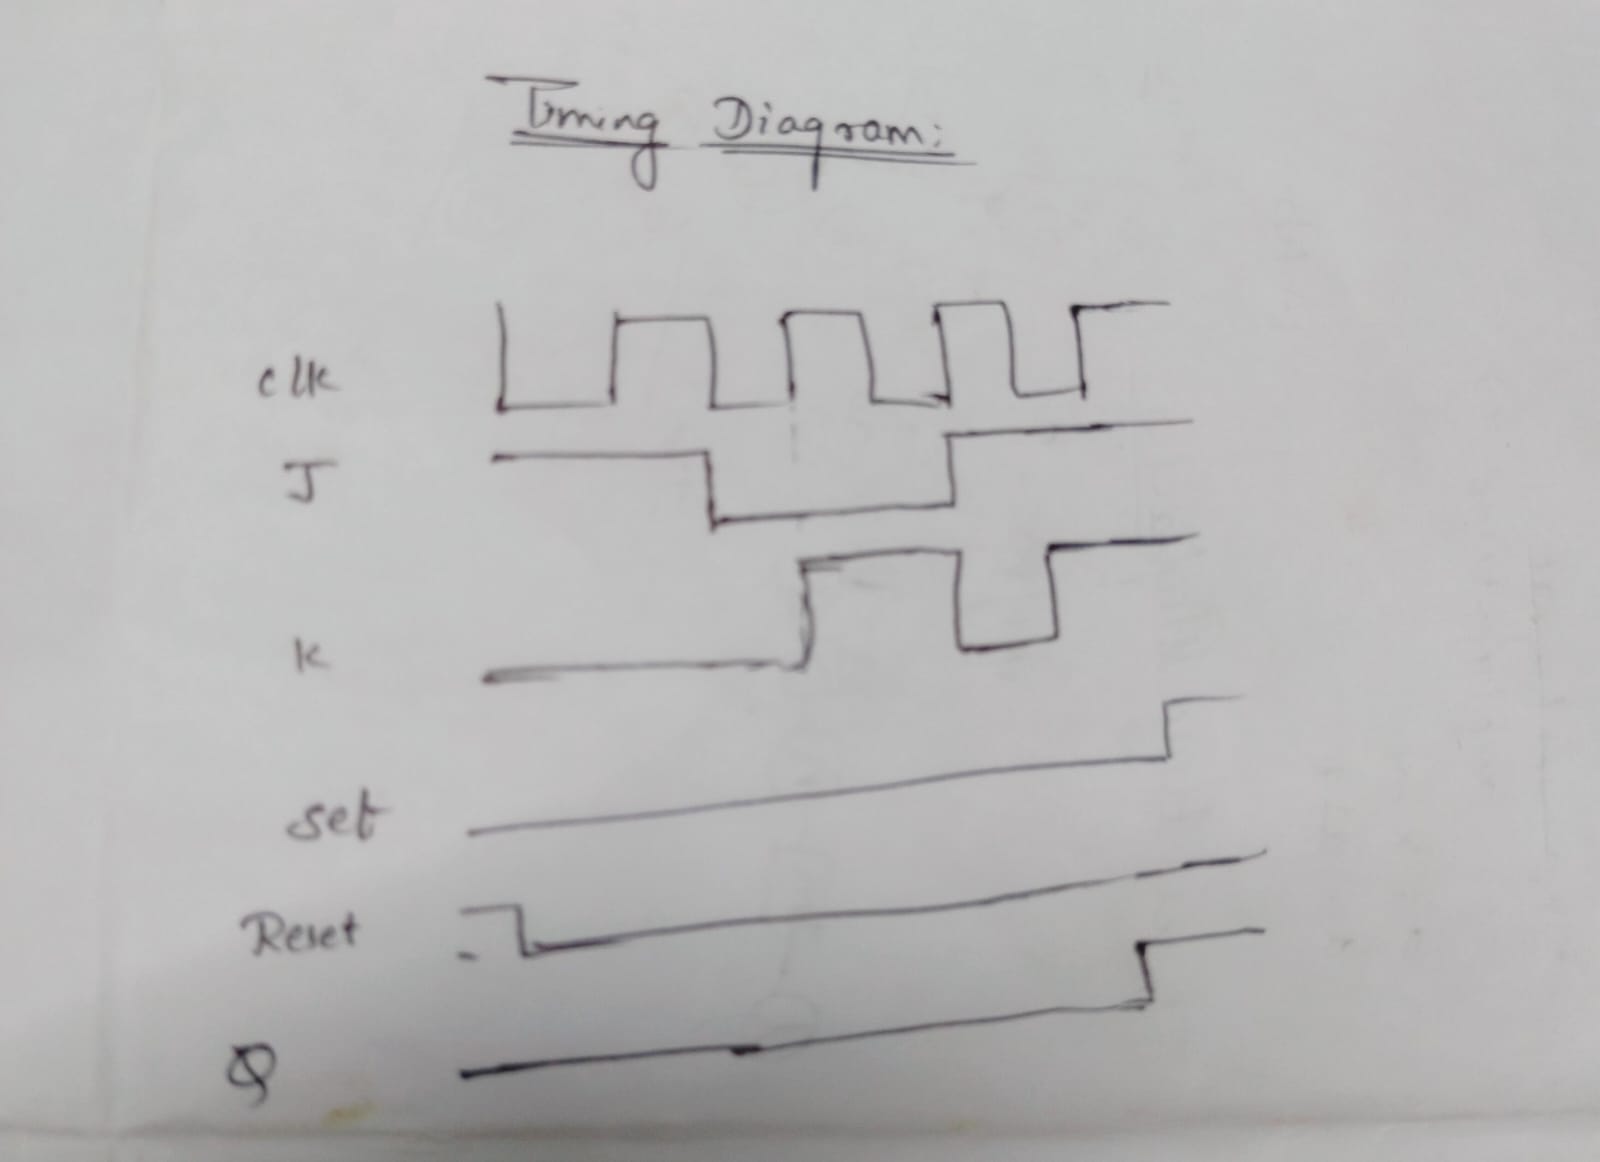 Timing Diagram:
clk
J
K
set
Reset
Q